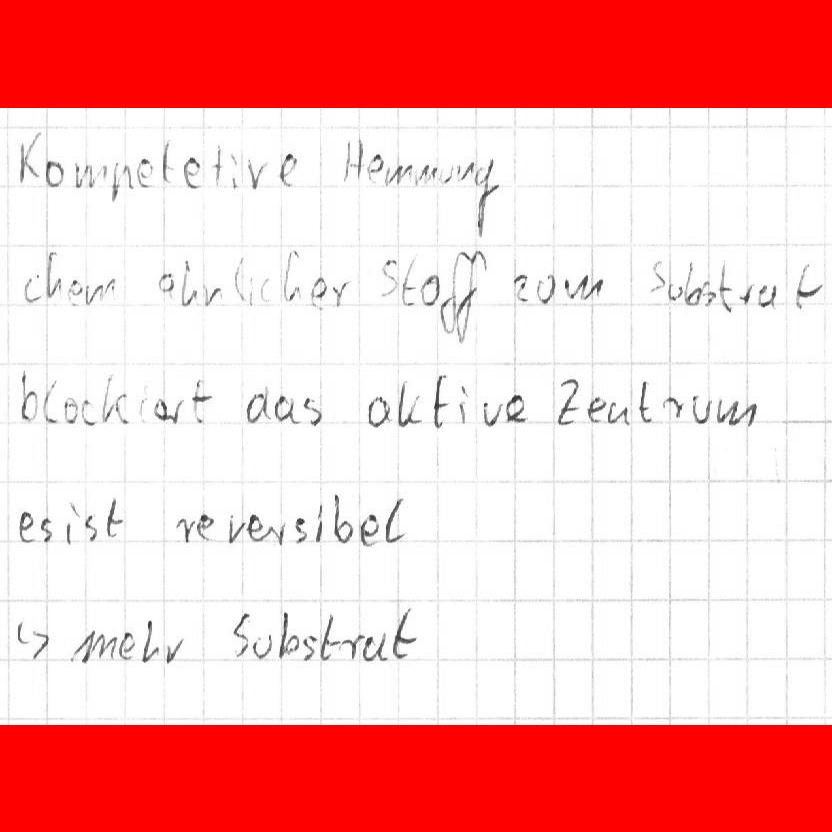 Kompetetive Hemmung
chem ähnlicher Stoff zum Substrat
blockiert das aktive Zentrum
es ist reversibel
↳ mehr Substrat